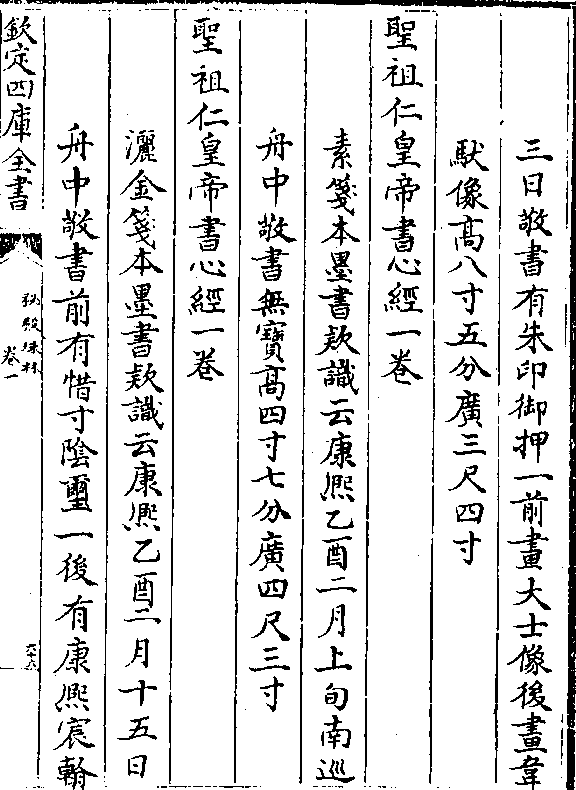 三日敬書有朱印御押一前畫大士像後畫韋
馱像髙八寸五分廣三尺四寸
聖祖仁皇帝書心經一卷
素箋本墨書欵識云康熙乙酉二月上旬南巡
舟中敬書無寳髙四寸七分廣四尺三寸
聖祖仁皇帝書心經一卷
灑金箋本墨書欵識云康熙乙酉二月十五日
舟中敬書前有惜寸陰璽一後有康熙宸翰
欽定四庫全書
秘殿珠林
卷一